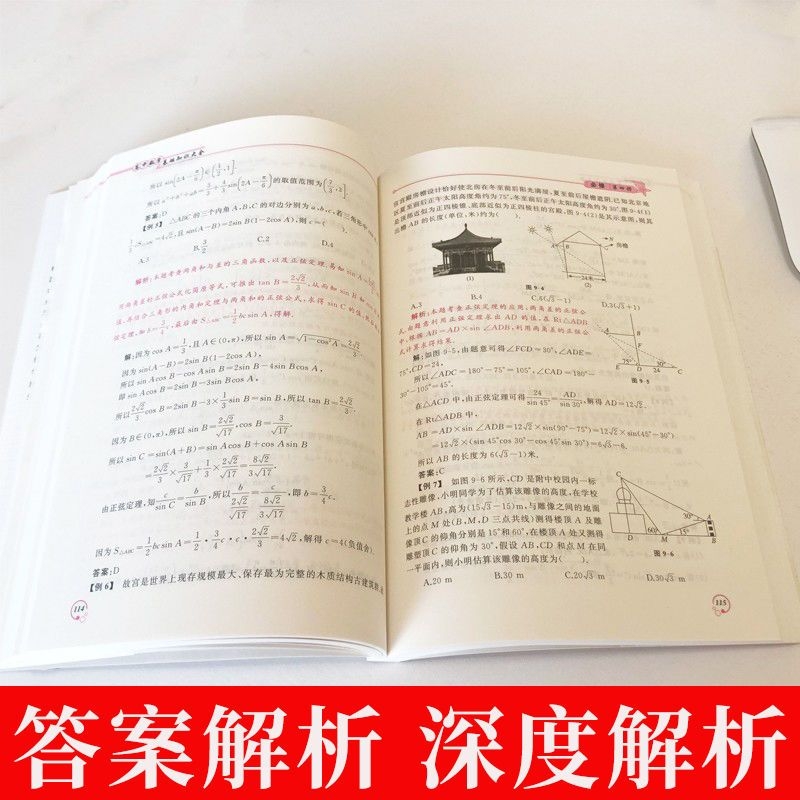 高中数学基础知识大全
答案:D
【例5】 △ABC的三个内角A,B,C的对边分别为a,b,c,若三角形
=4√2,且sin(A−B)=2sin B(1−2cos A),则c=( )
A.3 B.3/2 C.2 D.4
解析:本题考查两角和与差的三角函数,以及正弦定理.易知sin A=
用两角差的正弦公式化简原等式,可推出tan B=2√2/3,从而知sin B和
弦定理,知b=3/4c,最后由S△ABC=1/2bcsin A,得解.
解:因为cos A=1/3,且A∈(0,π),所以sin A=√(1−cos²A)=2√2/3.
因为sin(A−B)=2sin B(1−2cos A),
所以sin Acos B−cos Asin B=2sin B−4sin Bcos A,
即sin Acos B=2sin B−3sin Bcos A,
所以2√2/3cos B=2sin B−3×1/3sin B=sin B,所以tan B=2√2/3.
因为B∈(0,π),所以sin B=2√2/√17,cos B=3/√17.
所以sin C=sin(A+B)=sin Acos B+cos Asin B
=2√2/3×3/√17+1/3×2√2/√17=8√2/3√17.
由正弦定理,知c/sin C=b/sin B,所以b/(2√2/√17)=c/(8√2/3√17),即b=3/4c.
因为S△ABC=1/2bcsin A=1/2·3/4c·c·2√2/3=4√2,解得c=4(负值舍).
答案:D
【例6】 故宫是世界上现存规模最大、保存最为完整的木质结构古建筑群,
114
必修 第四册
宫宫殿房檐设计恰好使北房在冬至前后阳光满屋,夏至前后屋檐遮阴.已知北京地
区夏至前后正午太阳高度角约为75°,冬至前后正午太阳高度角约为30°.图9-4(1)
是顶部近似为正四棱锥、底部近似为正四棱柱的宫殿,图9-4(2)是其示意图,则其
出檐AB的长度(单位:米)约为( ).
A
B
房檐
24米
(1)
(2)
图9-4
A.3 B.4 C.6(√3−1) D.3(√3+1)
解析:本题考查正弦定理的应用,两角差的正弦公
式.由题意利用正弦定理求出AD的值,在Rt△ADB
中,根据AB=AD×sin∠ADB,利用两角差的正弦公
式计算求得结果.
解:如图9-5,由题意可得∠FCD=30°,∠ADE=
75°,CD=24,
所以∠ADC=180°−75°=105°,∠CAD=180°−
30°−105°=45°.
75°
30°
E D 24 C
图9-5
在△ACD中,由正弦定理可得24/sin 45°=AD/sin 30°,解得AD=12√2.
在Rt△ADB中,
AB=AD×sin∠ADB=12√2×sin(90°−75°)=12√2×sin(45°−30°)
=12√2×(sin 45°cos 30°−cos 45°sin 30°)=6√3−6.
所以AB的长度为6(√3−1)米.
答案:C
【例7】 如图9-6所示,CD是附中校园内一标
志性雕像,小明同学为了估算该雕像的高度,在学校
教学楼AB,高为(15√3−15)m,与雕像之间的地面
上的点M处(B,M,D三点共线)测得楼顶A及雕
像顶C的仰角分别是15°和60°,在楼顶A处又测得
雕塑顶C的仰角为30°,假设AB,CD和点M在同
一平面内,则小明估算该雕像的高度为( ).
C
30°
A
60°
15°
D
M
B
图9-6
A.20 m B.30 m C.20√3 m D.30√3 m
115
答案解析 深度解析